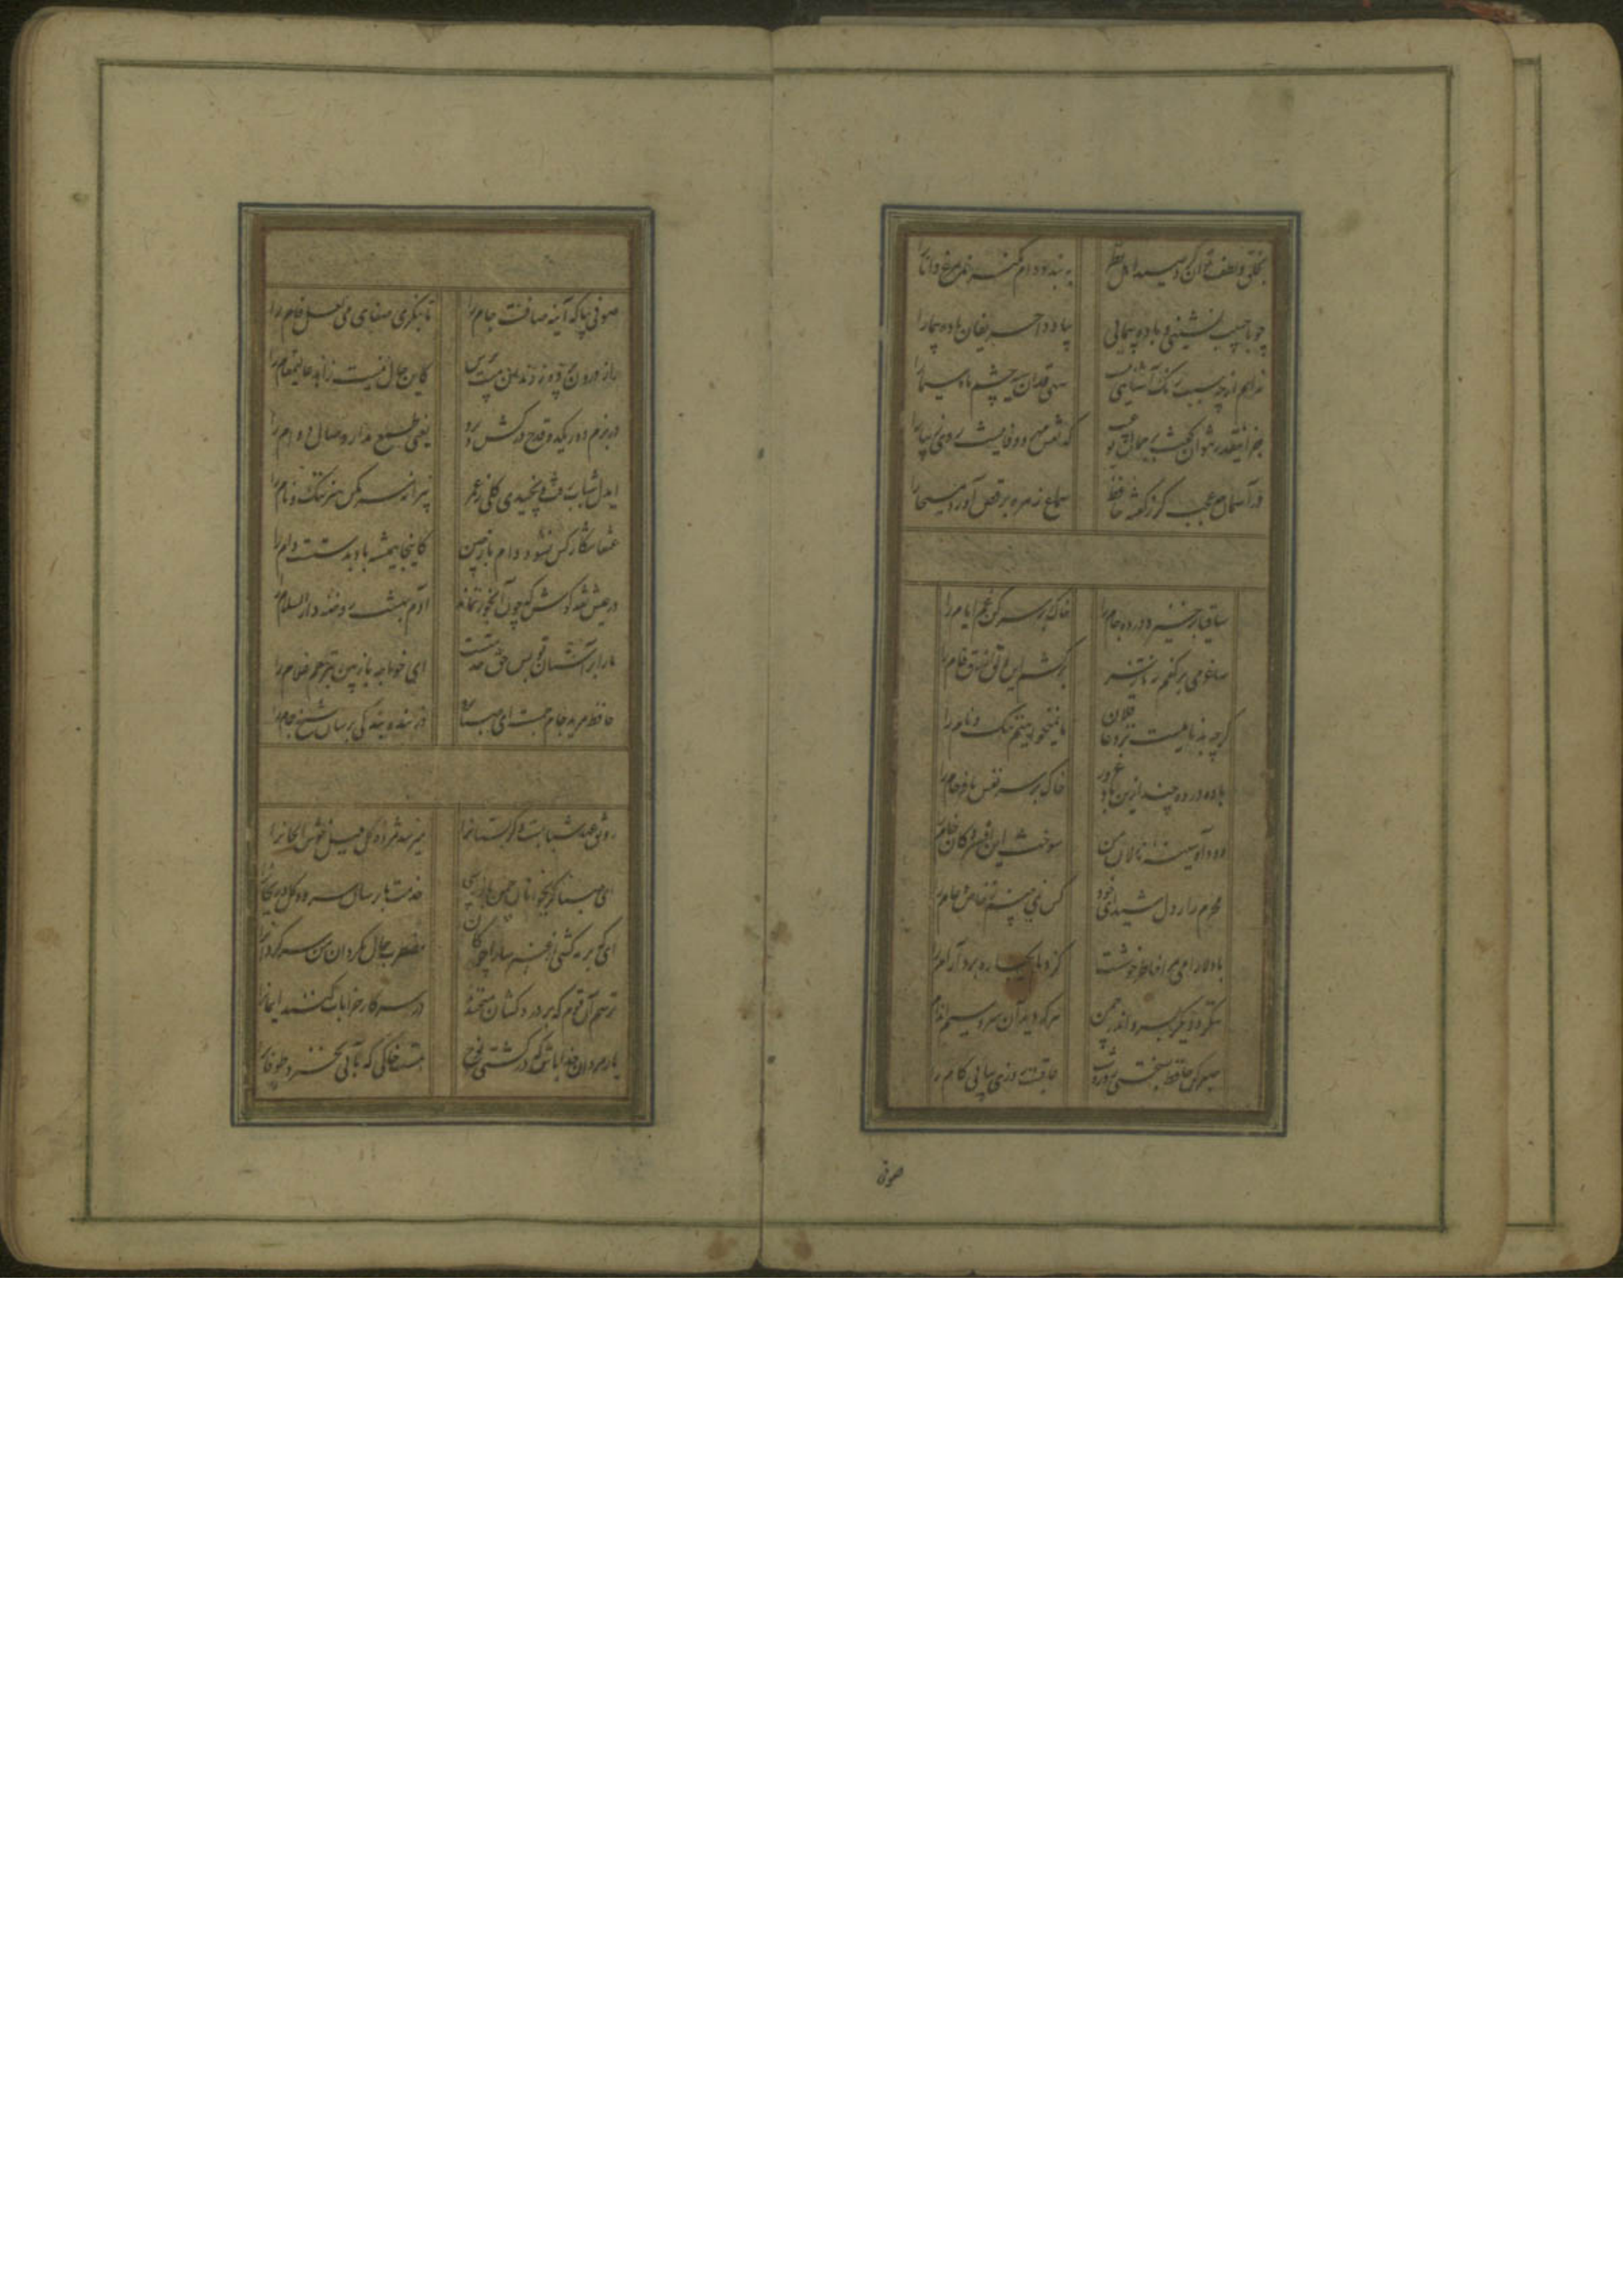 بخلق و لطف توان کرد صید اهل نظر به بند و دام نگیرند مرغ دانا را
چو با حبیب نشینی و باده پیمایی بیاد دار حریفان باده پیما را
ندانم از چه سبب رنگ آشنایی نیست سهی قدان سیه چشم ماه سیما را
جز اینقدر نتوان گفت بر جمال تو عیب که مهر و وفا نیست روی زیبا را
در آسمان چه عجب گر ز گفته حافظ سماع زهره برقص آورد مسیحا را
ساقیا برخیز و در ده جام را خاک بر سر کن غم ایام را
ساغر می بر کفم نه تا ز بر بر کشم این دلق ازرق فام را
گرچه بدنامیست نزد عاقلان ما نمیخواهیم ننک و نام را
باده در ده چند ازین باد غرور خاک بر سر نفس نافرجام را
دود آه سینه نالان من سوخت این افسردگان خام را
محرم راز دل شیدای خود کس نمی بینم ز خاص و عام را
با دلارامی مرا خاطر خوشست کز دلم یکباره برد آرام را
ننگرد دیگر بسرو اندر چمن هر که دید آن سرو سیم اندام را
صبر کن حافظ بسختی روز و شب عاقبت روزی بیابی کام را
صوفی
صوفی بیا که آینه صافیست جام را تا بنگری صفای می لعل فام را
راز درون پرده ز رندان مست پرس کاین حال نیست زاهد عالیمقام را
در بزم دور یکدو قدح درکش و برو یعنی طمع مدار وصال دوام را
ایدل شباب رفت و نچیدی گلی ز عمر پیرانه سر مکن هنر ننک و نام را
عنقا شکار کس نشود دام باز چین کاینجا همیشه باد بدستست دام را
در عیش نقد کوش که چون آبخور نماند آدم بهشت روضه دارالسلام را
ما را بر آستان تو بس حق خدمتست ای خواجه باز بین بترحم غلام را
حافظ مرید جام جمست ای صبا برو وز بنده بندگی برسان شیخ جام را
رونق عهد شبابست دگر بستانرا میرسد مژده گل بلبل خوش الحانرا
ای صبا گر بجوانان چمن باز رسی خدمت ما برسان سرو و گل و ریحانرا
ای که بر مه کشی از عنبر سارا چوکان مضطرب حال مگردان من سرگردانرا
ترسم آن قوم که بر درد کشان میخندند در سر کار خرابات کنند ایمانرا
یار مردان خدا باش که در کشتی نوح هست خاکی که بآبی نخرد طوفانرا